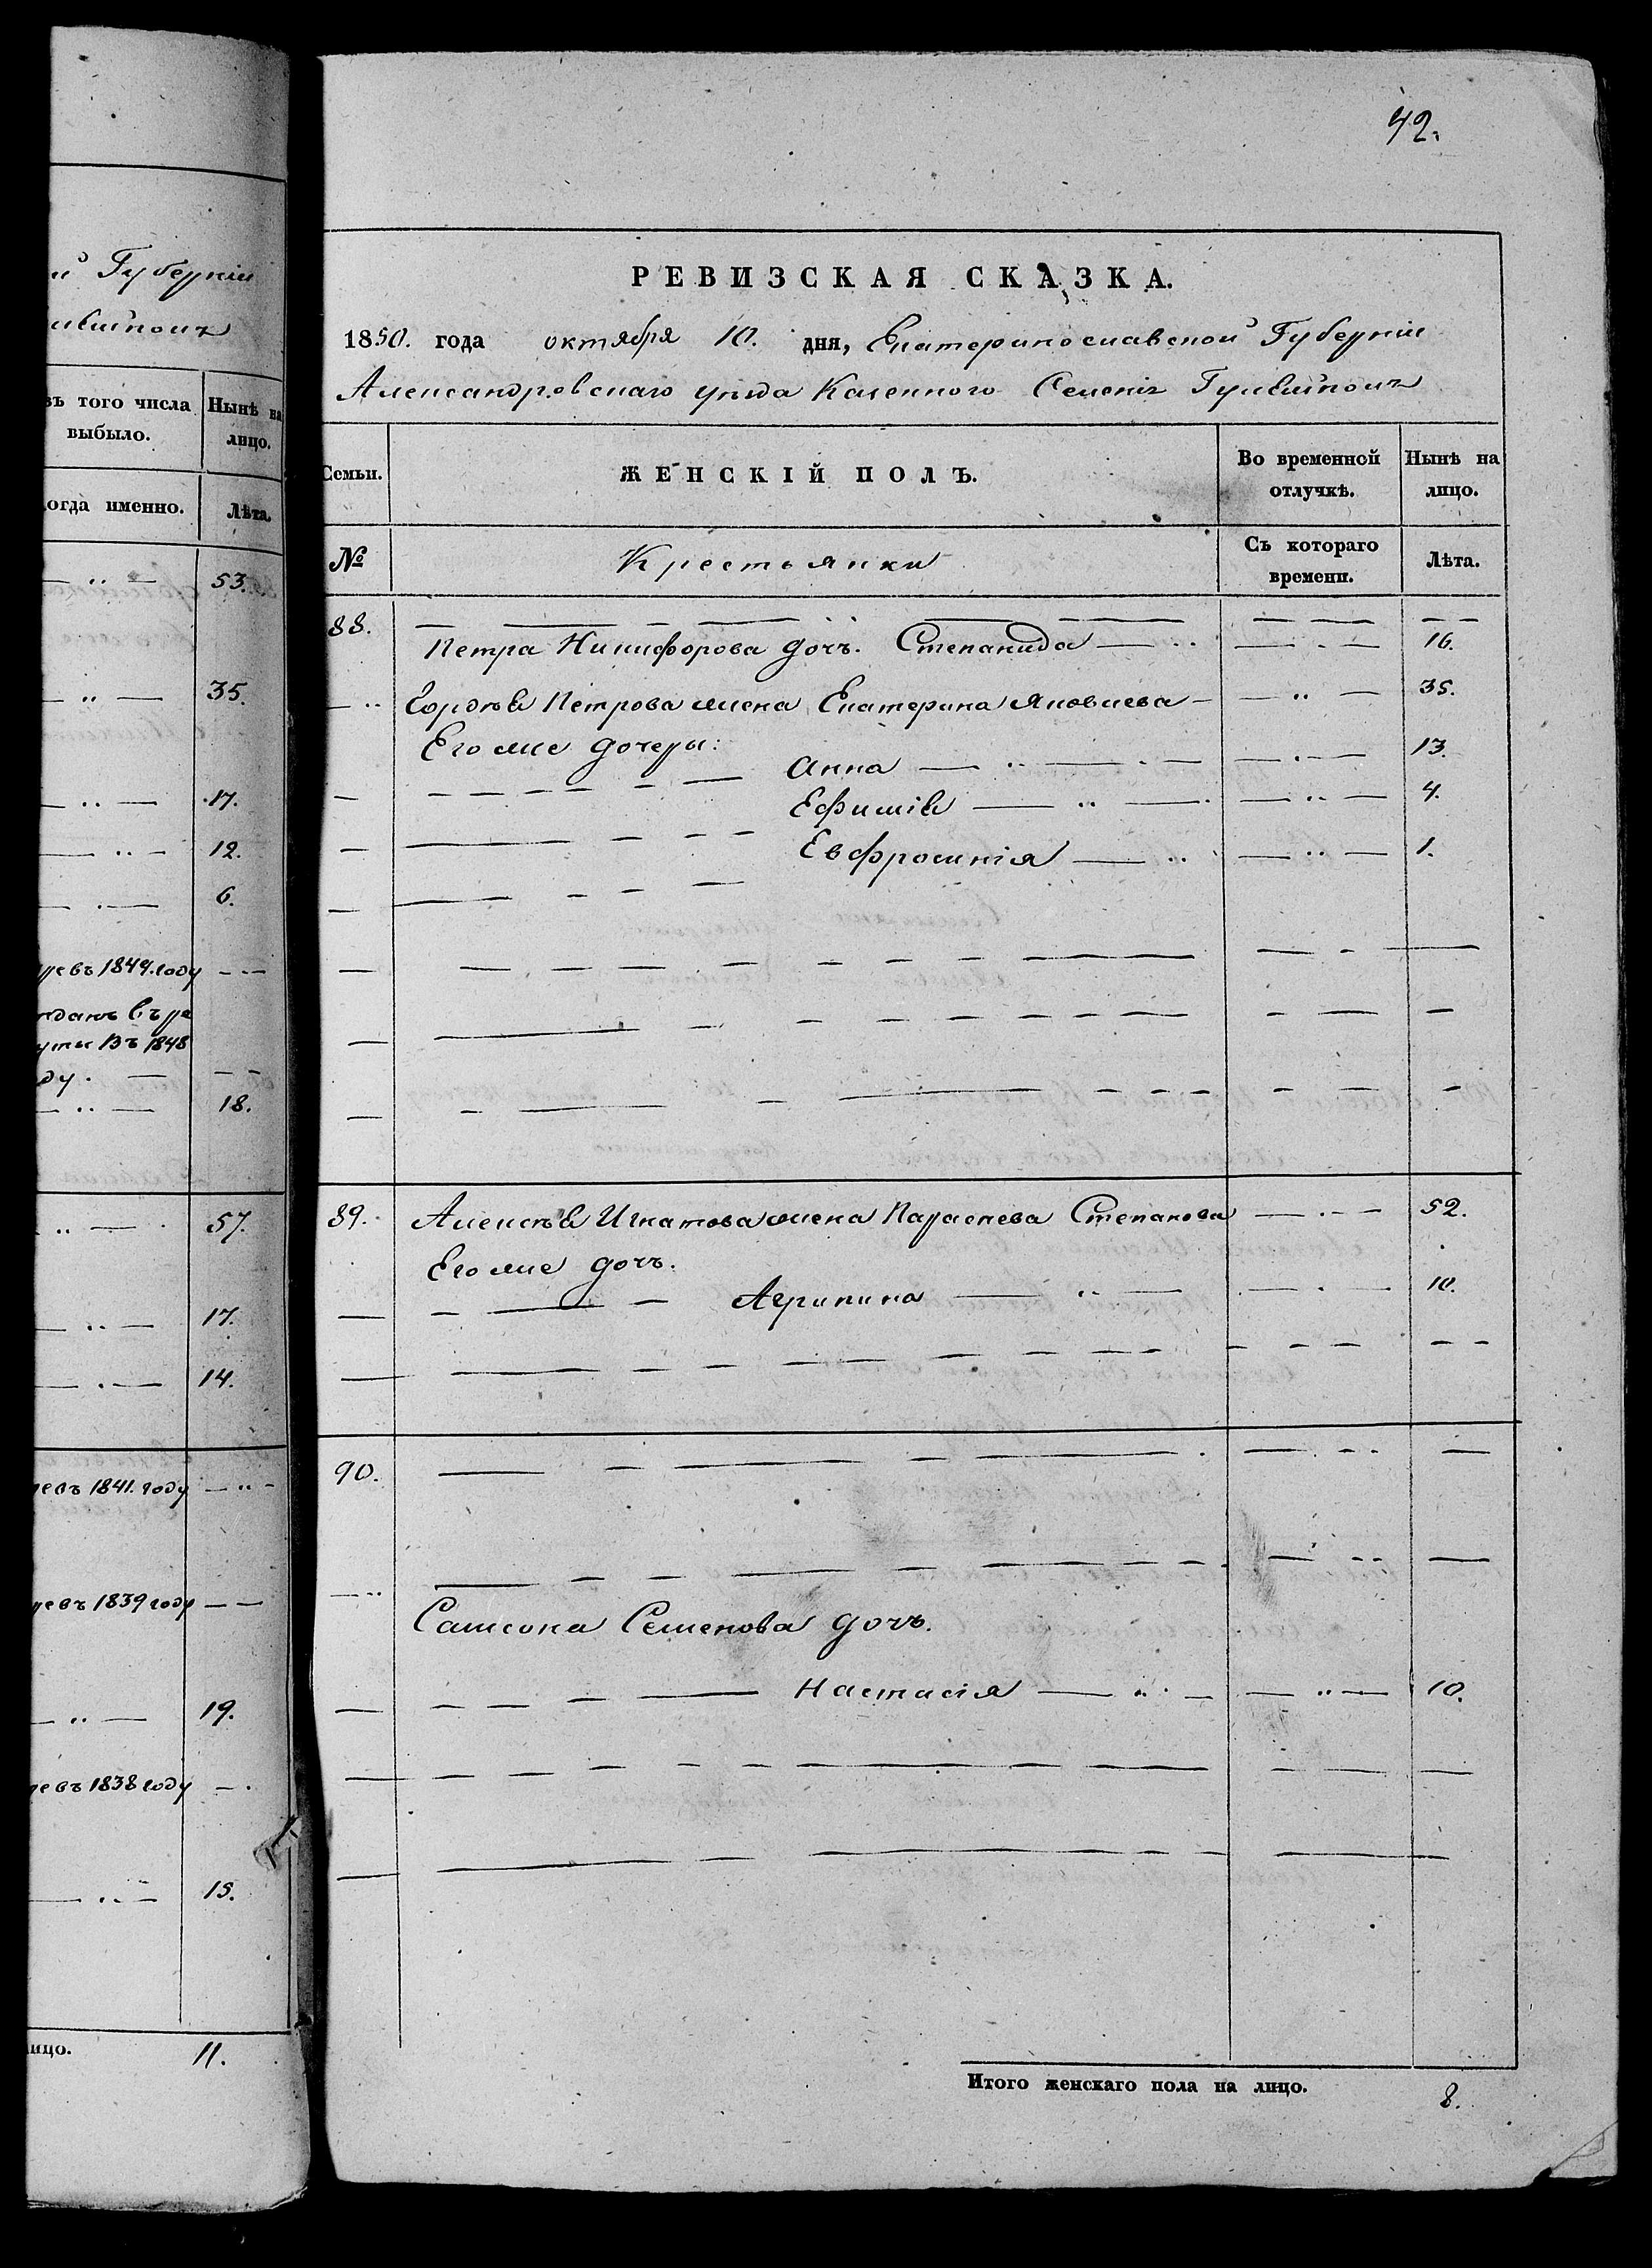 й Губерніи
его числа
Нынѣ на
выбыло.
лицо.
когда именно.
Лѣта.
53.
35.
17.
12.
6.
1849. году
въ ре
круты въ 1848
ду.
18.
57.
17.
14.
1841. году
1839 году
19.
1838 году
15.
лицо.
11.
42.
РЕВИЗСКАЯ СКАЗКА.
1850. года октября 10. дня, Екатеринославской Губерніи
Александровскаго уѣзда Казенного Селенія Гуляйполя
Семьи.
ЖЕНСКІЙ ПОЛЪ.
Во временной отлучкѣ.
Нынѣ на лицо.
№
Крестьянки
Съ котораго времени.
Лѣта.
88.
Петра Никифорова дочь. Степанида 16.
Гордѣя Петрова жена Екатерина Яковлева 35.
Его же дочери:
Анна 13.
Ефимія 4.
Евфросинія 1.
89. Алексѣя Игнатова жена Параскева Степанова 52.
Его же дочь.
Агрипина 10.
90.
Самсона Семенова дочь.
Настасія 10.
Итого женскаго пола на лицо. 8.